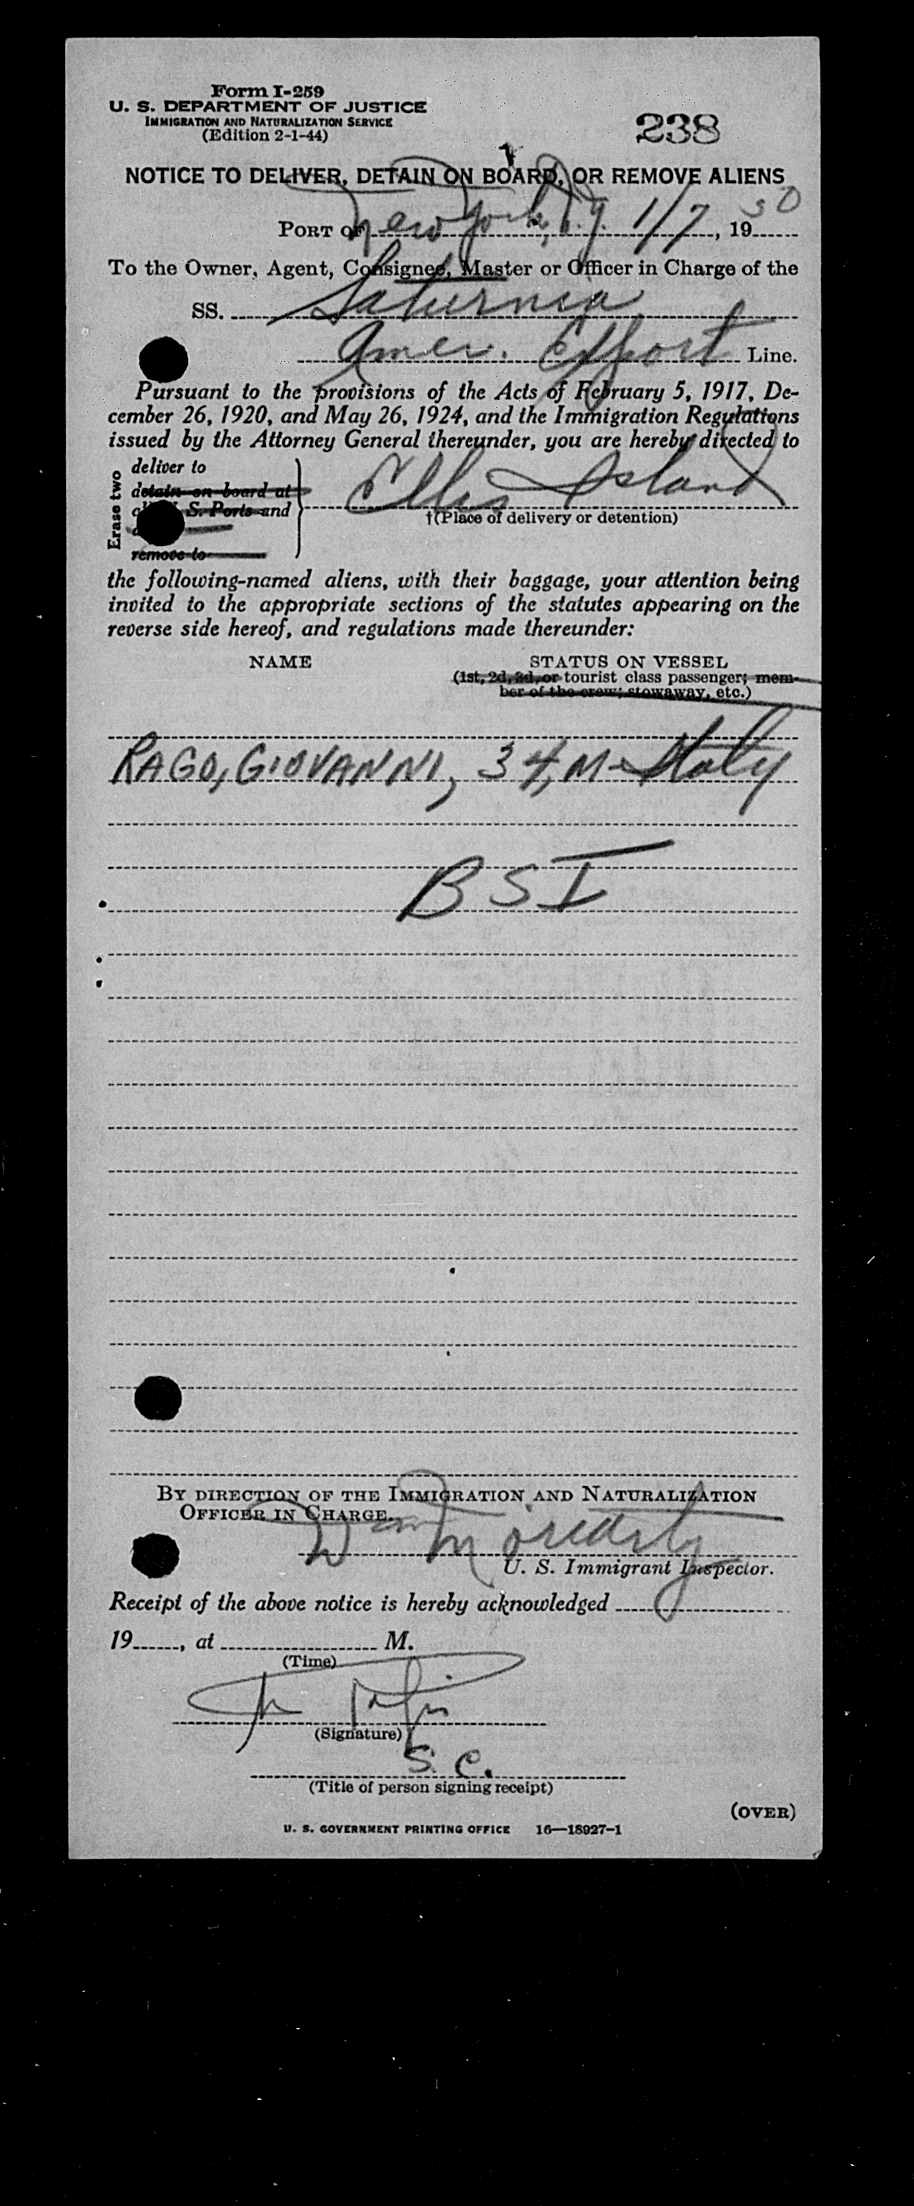 Form I-259
U. S. DEPARTMENT OF JUSTICE
IMMIGRATION AND NATURALIZATION SERVICE
(Edition 2-1-44)
238
NOTICE TO DELIVER, DETAIN ON BOARD, OR REMOVE ALIENS
PORT OF New York, N.Y. 1/7, 1950
To the Owner, Agent, Consignee, Master or Officer in Charge of the
SS. Saturnia
Amer. Export Line.
Pursuant to the provisions of the Acts of February 5, 1917, De-
cember 26, 1920, and May 26, 1924, and the Immigration Regulations
issued by the Attorney General thereunder, you are hereby directed to
Erase two
deliver to
detain on board at
S. Ports and
remove to
Ellis Island
†(Place of delivery or detention)
the following-named aliens, with their baggage, your attention being
invited to the appropriate sections of the statutes appearing on the
reverse side hereof, and regulations made thereunder:
NAME STATUS ON VESSEL
(1st, 2d, 3d, or tourist class passenger; mem-
ber of the crew; stowaway, etc.)
RAGO, GIOVANNI, 34, M - Italy
BSI
BY DIRECTION OF THE IMMIGRATION AND NATURALIZATION
OFFICER IN CHARGE.
Wm Moriarty
U. S. Immigrant Inspector.
Receipt of the above notice is hereby acknowledged
19, at M.
(Time)
(Signature)
S. C.
(Title of person signing receipt)
(OVER)
U. S. GOVERNMENT PRINTING OFFICE 16—18927-1